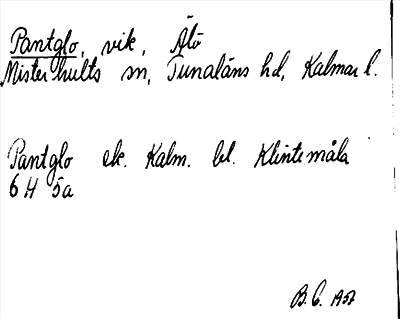 Pantglo, vik, Älö
Misterhults sn, Tunaläns hd, Kalmar l.
Pantglo ek. Kalm. bl. Klintemåla
6 H 5a
B. C. 1957